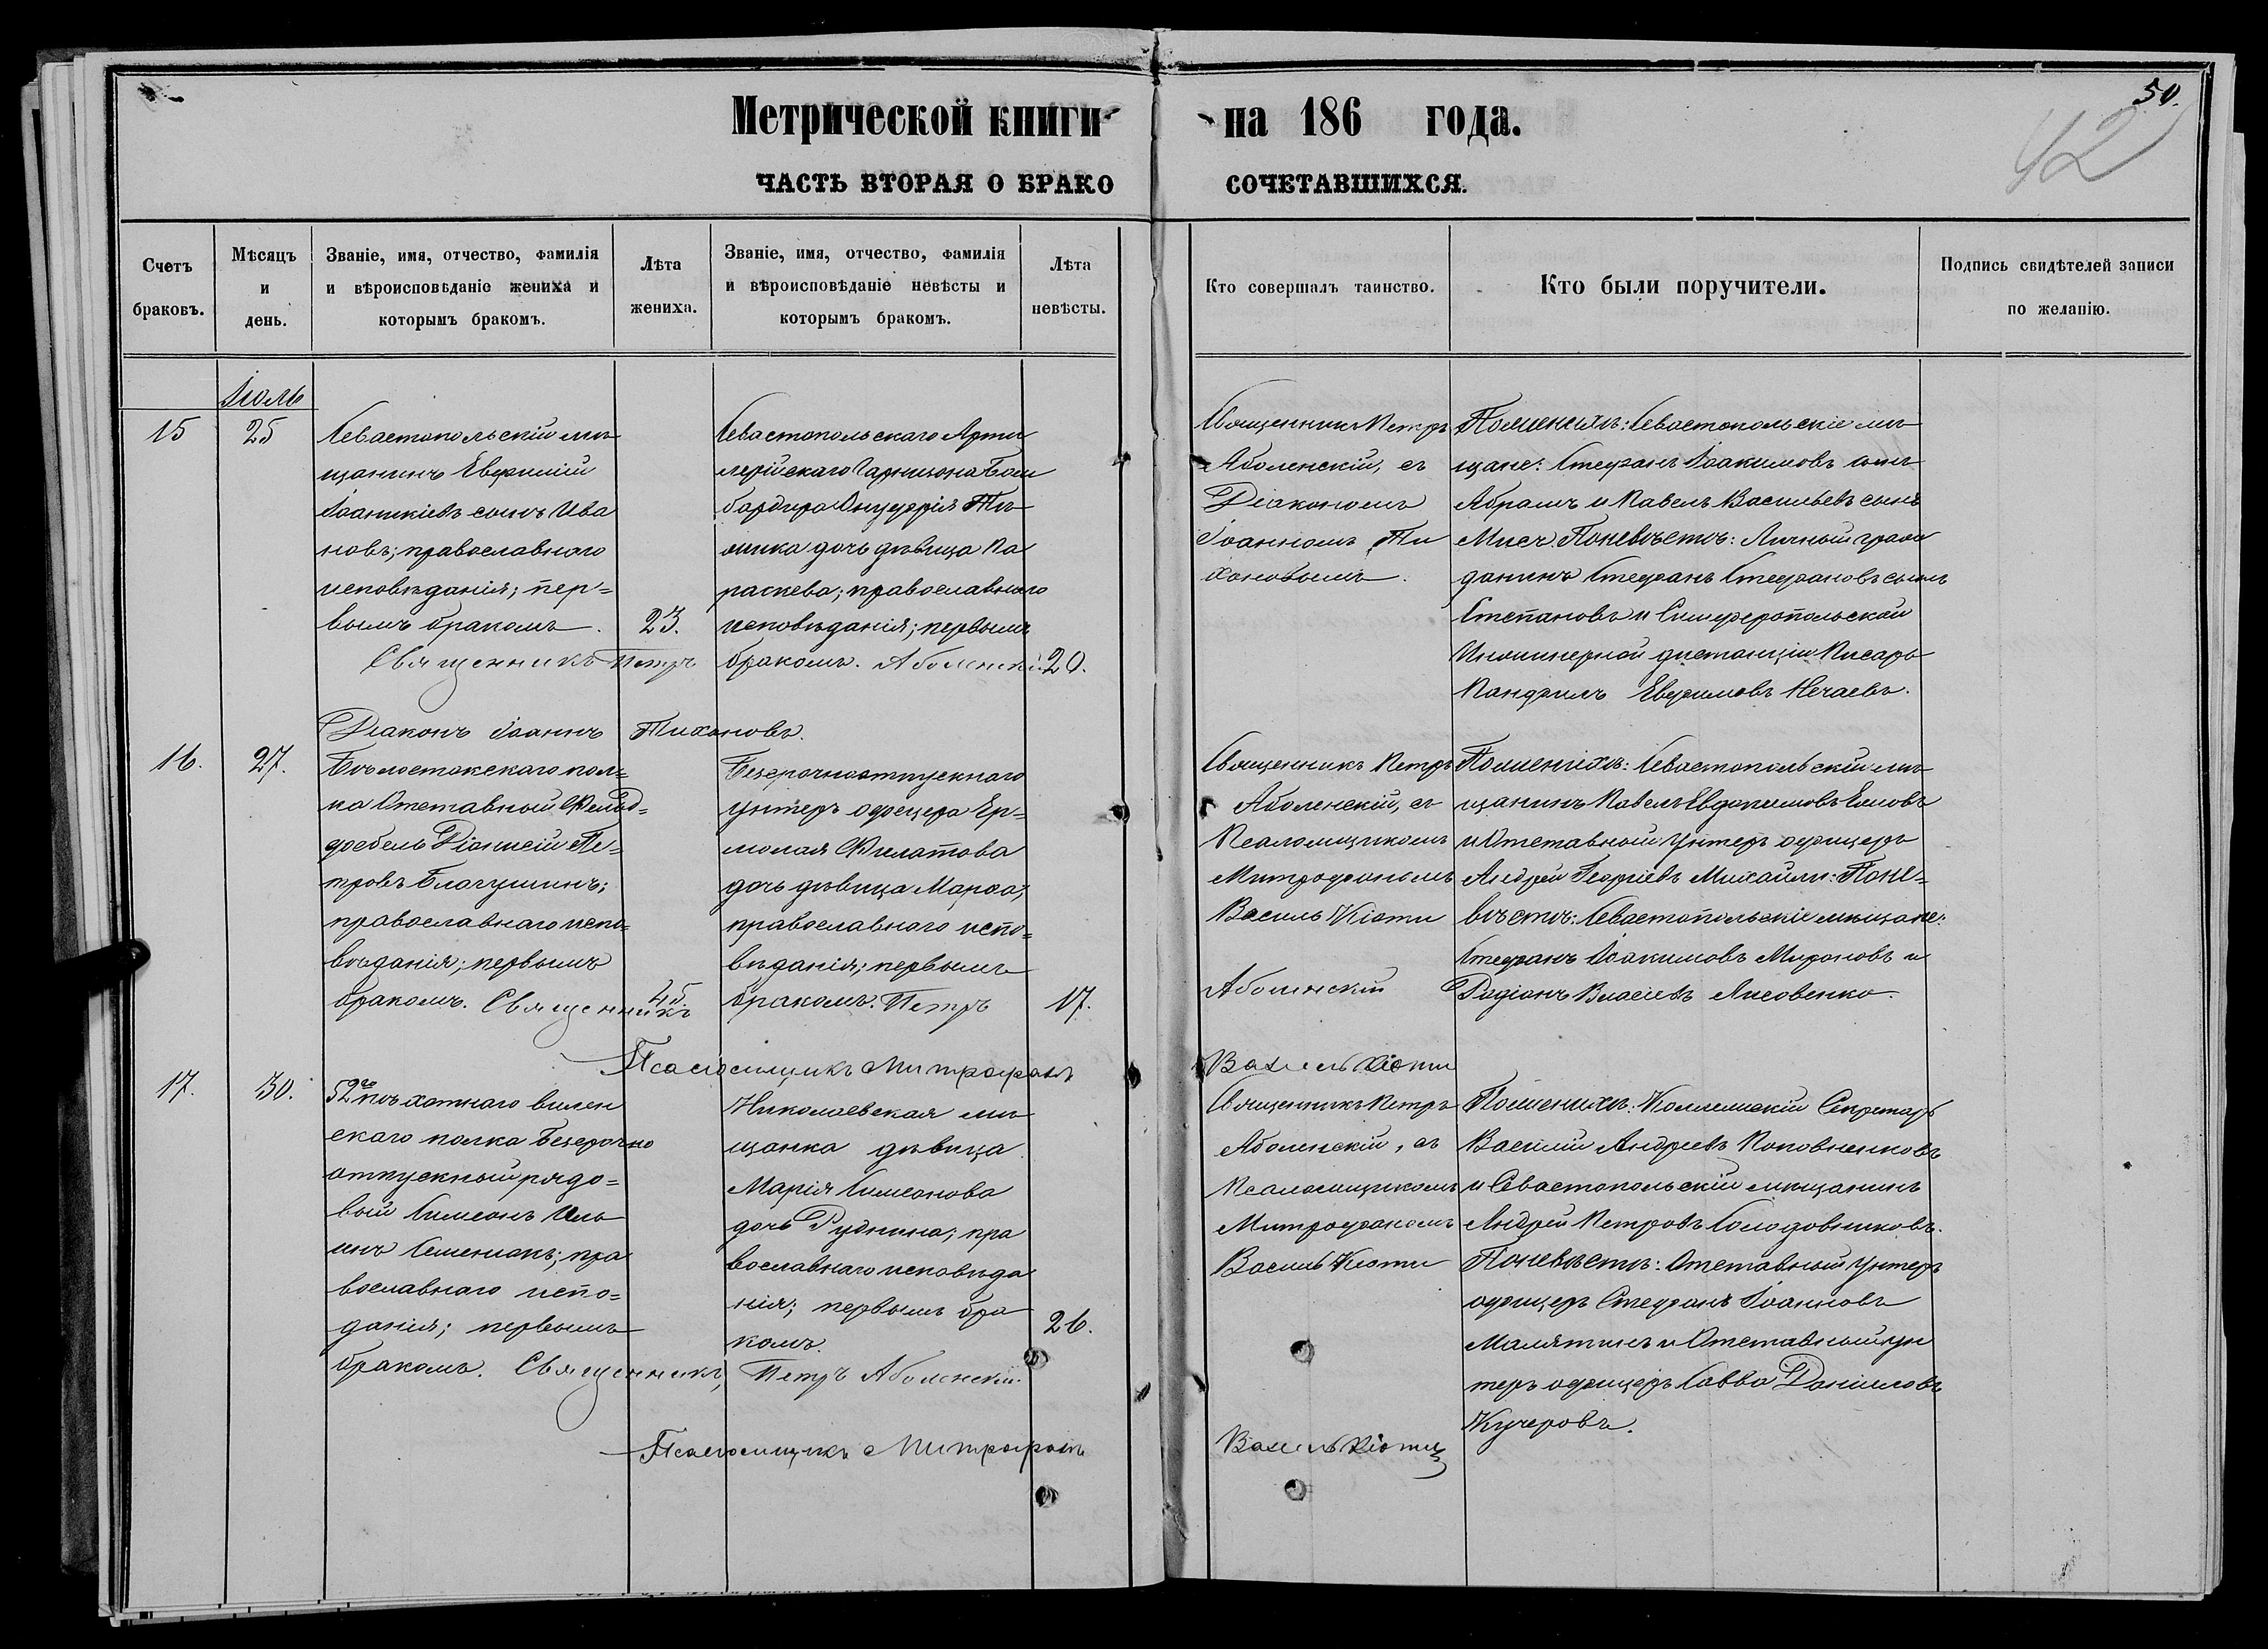 50.
42
Метрической книги на 186 года.
ЧАСТЬ ВТОРАЯ О БРАКОСОЧЕТАВШИХСЯ.
Счетъ
браковъ.
Мѣсяцъ
и
день.
Званіе, имя, отчество, фамилія
и вѣроисповѣданіе жениха и
которымъ бракомъ.
Лѣта
жениха.
Званіе, имя, отчество, фамилія
и вѣроисповѣданіе невѣсты и
которымъ бракомъ.
Лѣта
невѣсты.
Кто совершалъ таинство.
Кто были поручители.
Подпись свидѣтелей записи
по желанію.
Іюль
15
25
Севастопольскій мѣ
щанинъ Евфимій
Іоанникіевъ сынъ Ива
новъ; православнаго
исповѣданія; пер=
вымъ бракомъ.
23.
Севастопольскаго Арти
лерійскаго Гарнизона Бом
бардира Онуфрія
дочь дѣвица Па
раскева; православнаго
исповѣданія; первымъ
бракомъ.
20.
Священникъ Петръ Аболенскій
Діаконъ Іоаннъ Тихоновъ.
Священникъ Петръ
Аболенскій, съ
Діакономъ
Іоанномъ Ти
хоновымъ.
По женихѣ: Севастопольскіе мѣ
щане: Стефанъ Іоакимовъ сынъ
Абрамъ и Павелъ Васильевъ сынъ
По невѣстѣ: Личный граж
данинъ Стефанъ Стефановъ сынъ
Степановъ и Симферопольской
Инженерной дистанціи Писарь
Панфилъ Евфимовъ Нечаевъ.
16.
27.
Бѣлостокскаго пол=
ка Отставный Фельд=
фебель Діонисій Пе=
тровъ Благушинъ;
православнаго испо=
вѣданія; первымъ
бракомъ.
45.
Безсрочноотпускнаго
унтеръ офицера Ер=
молая Филатова
дочь дѣвица Марѳа;
православнаго испо=
вѣданія; первымъ
бракомъ.
17.
Священникъ Петръ Аболенскій
Псаломщикъ Митрофанъ Василькіоти
Священникъ Петръ
Аболенскій, съ
Псаломщикомъ
Митрофаномъ
Василькіоти
По женихѣ: Севастопольскій мѣ
щанинъ Павелъ Евдокимовъ
и Отставной Унтеръ офицеръ
Андрей Георгіевъ Михайли: По не=
вѣстѣ: Севастопольскіе мѣщане:
Стефанъ Іоакимовъ Мироновъ и
Родіонъ Власіевъ Лисовенко.
17.
30.
52го пѣхотнаго вилен
скаго полка Безсрочно
отпускный рядо=
вый Симеонъ Иль
инъ Семенякъ; пра
вославнаго испо=
данія; первымъ
бракомъ.
Николаевская мѣ
щанка дѣвица
Марія Симеонова
дочь Руднина; пра
вославнаго исповѣда
нія; первымъ бра
комъ.
26.
Священникъ Петръ Аболенскій
Псаломщикъ Митрофанъ Василькіоти
Священникъ Петръ
Аболенскій, съ
Псаломщикомъ
Митрофаномъ
Василькіоти
По женихѣ: Коллежскій Секретарь
Василій Андреевъ Половниковъ
и Севастопольскій мѣщанинъ
Андрей Петровъ Солодовниковъ.
По невѣстѣ: Отставный Унтеръ
офицеръ Стефанъ Іоанновъ
Малятинъ и Отставный ун
теръ офицеръ Савва Даниловъ
Кучеровъ.